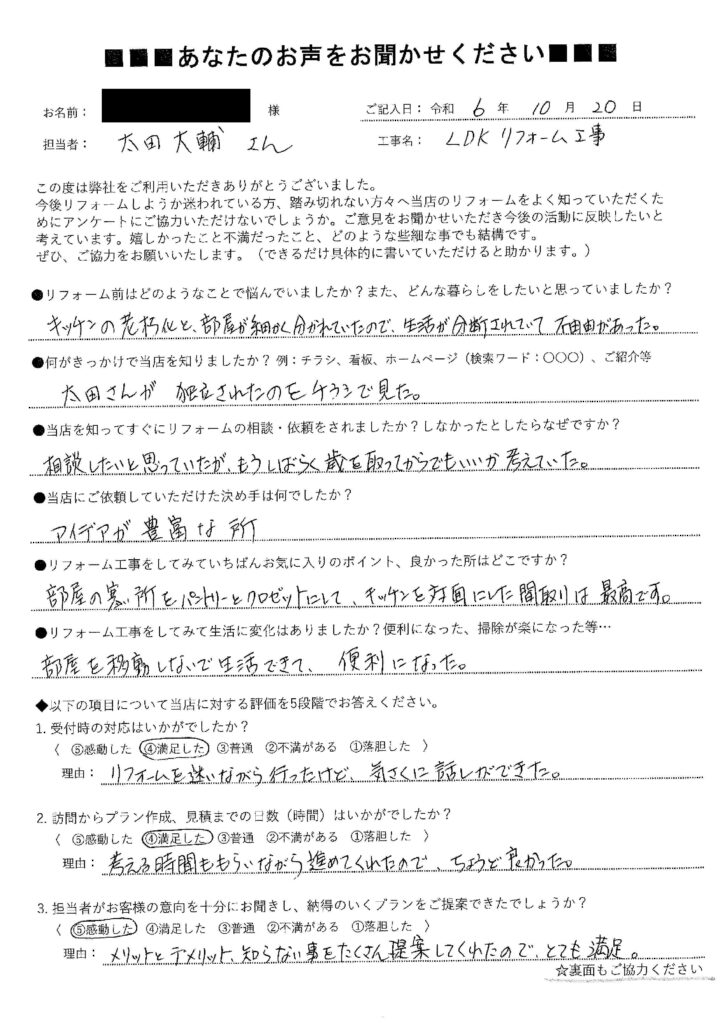 ■■■あなたのお声をお聞かせください■■■
お名前： 様 ご記入日：令和 6 年 10 月 20 日
担当者： 太田 大輔 さん 工事名： LDKリフォーム工事
この度は弊社をご利用いただきありがとうございました。
今後リフォームしようか迷われている方、踏み切れない方々へ当店のリフォームをよく知っていただくた
めにアンケートにご協力いただけないでしょうか。ご意見をお聞かせいただき今後の活動に反映したいと
考えています。嬉しかったこと不満だったこと、どのような些細な事でも結構です。
ぜひ、ご協力をお願いいたします。（できるだけ具体的に書いていただけると助かります。）
●リフォーム前はどのようなことで悩んでいましたか？また、どんな暮らしをしたいと思っていましたか？
キッチンの老朽化と、部屋が細かく分かれていたので、生活が分断されていて不自由があった。
●何がきっかけで当店を知りましたか？例：チラシ、看板、ホームページ（検索ワード：〇〇〇）、ご紹介等
太田さんが 独立されたのをチラシで見た。
●当店を知ってすぐにリフォームの相談・依頼をされましたか？しなかったとしたらなぜですか？
相談したいと思っていたが、もうしばらく歳を取ってからでもいいか考えていた。
●当店にご依頼していただけた決め手は何でしたか？
アイデアが豊富な所
●リフォーム工事をしてみていちばんお気に入りのポイント、良かった所はどこですか？
部屋の寒い所をパントリーとクロゼットにして、キッチンを対面にした間取りは最高です。
●リフォーム工事をしてみて生活に変化はありましたか？便利になった、掃除が楽になった等…
部屋を移動しないで生活できて、便利になった。
◆以下の項目について当店に対する評価を5段階でお答えください。
1. 受付時の対応はいかがでしたか？
〈 ⑤感動した ④満足した ③普通 ②不満がある ①落胆した 〉
理由： リフォームを迷いながら行ったけど、気さくに話しができた。
2. 訪問からプラン作成、見積までの日数（時間）はいかがでしたか？
〈 ⑤感動した ④満足した ③普通 ②不満がある ①落胆した 〉
理由： 考える時間ももらいながら進めてくれたので、ちょうど良かった。
3. 担当者がお客様の意向を十分にお聞きし、納得のいくプランをご提案できたでしょうか？
〈 ⑤感動した ④満足した ③普通 ②不満がある ①落胆した 〉
理由： メリットとデメリット、知らない事をたくさん提案してくれたので、とても満足。
☆裏面もご協力ください